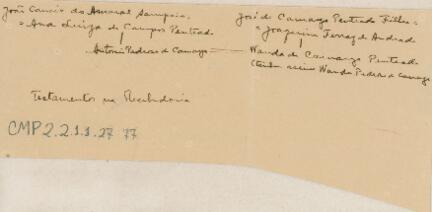 João Cancio do Amaral Sampaio
José de Camargo Penteado Filho
e Ana Luiza de Campos Penteado
e Joaquina Ferraz de Andrade
Antonio Pedroso de Camargo
Wanda de Camargo Penteado
Wanda Pedroso de Camargo
Testamentos na Recebedoria
CMP2.2.1.1.27 77